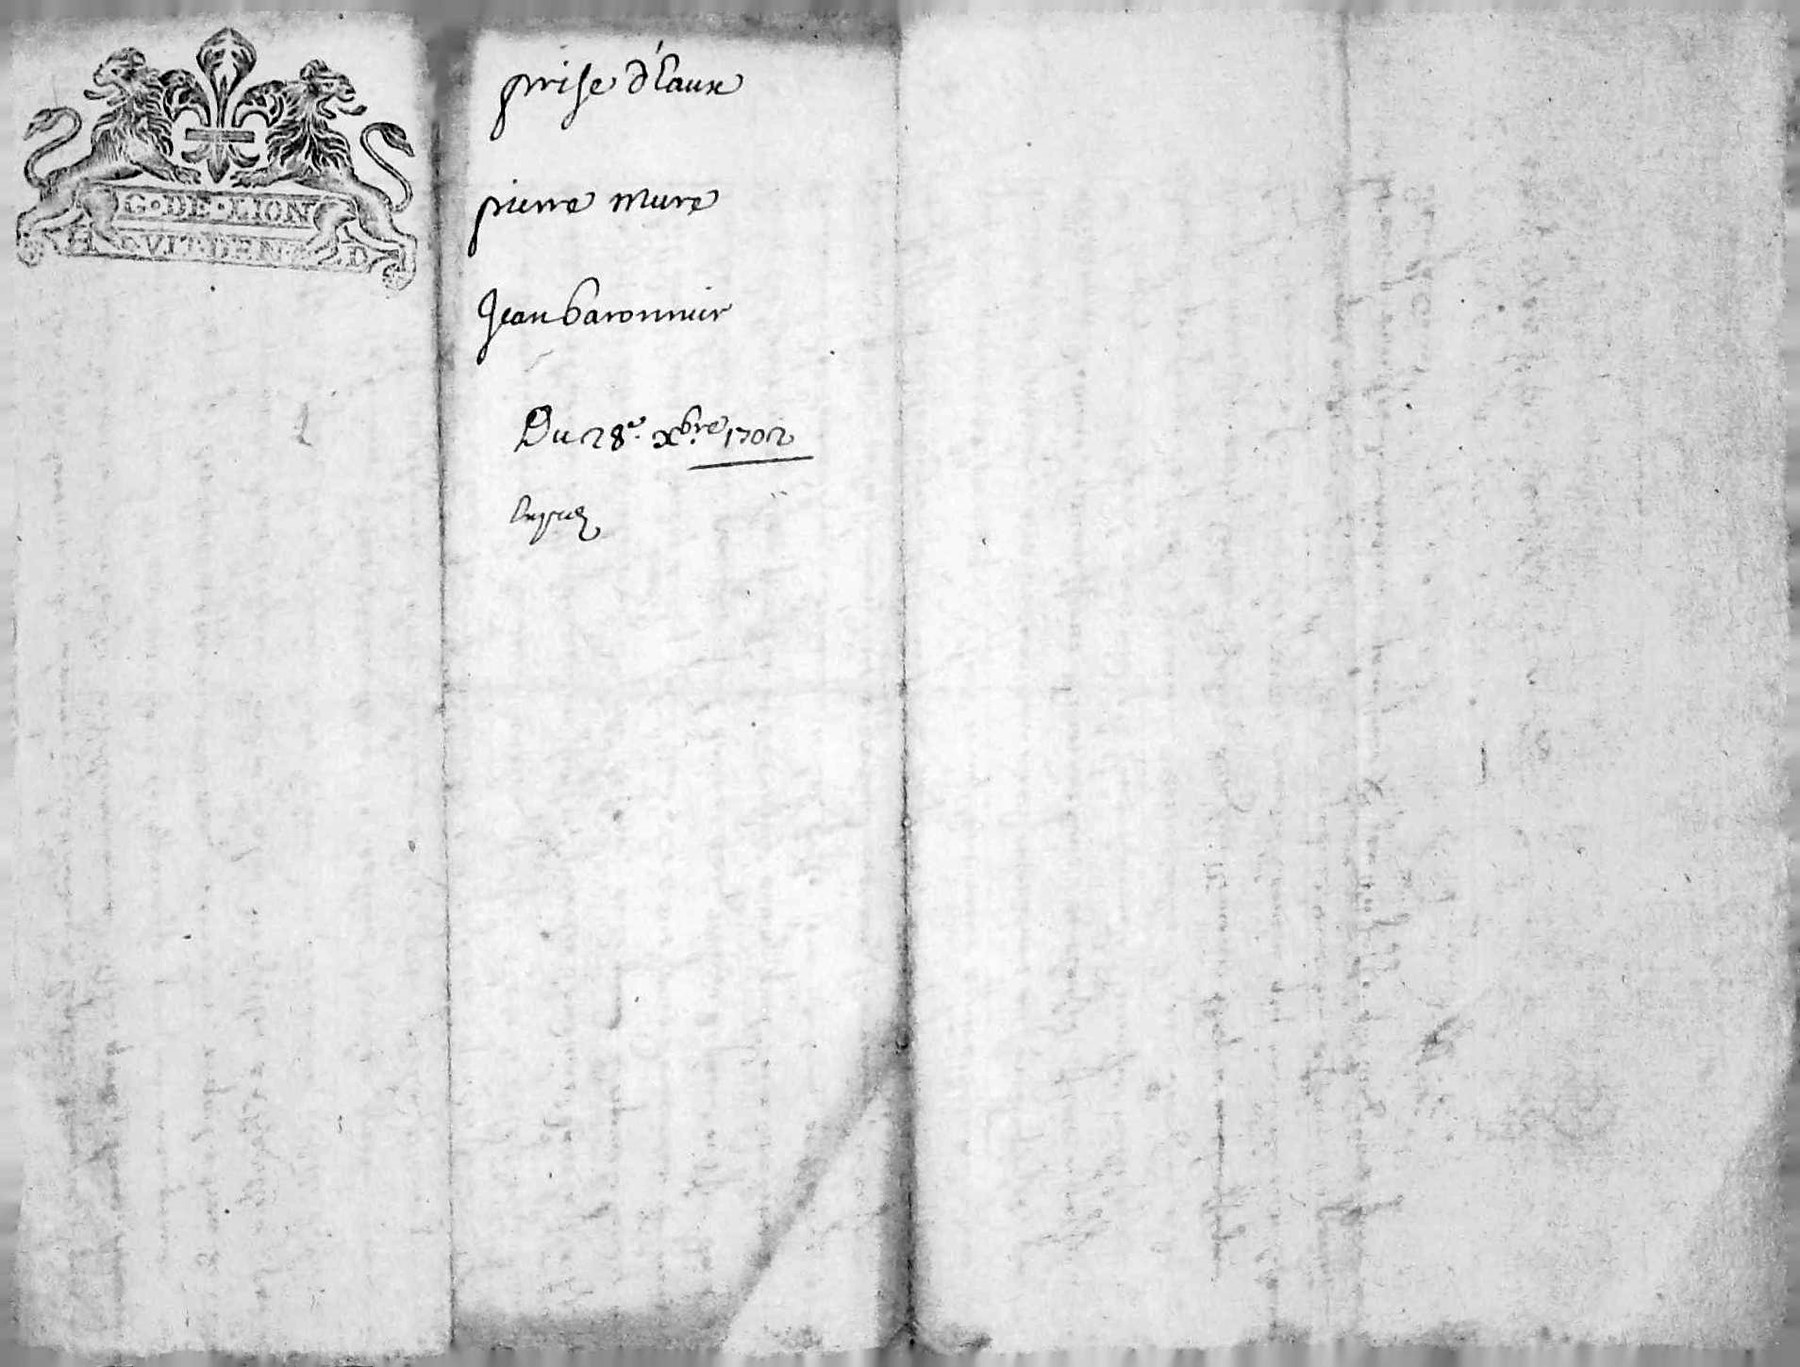 G·DE·LION
HVIT·DEN· D
prise d'Eaux
pierre mure
Jean baronnier
Du 28e. xbre. 1702